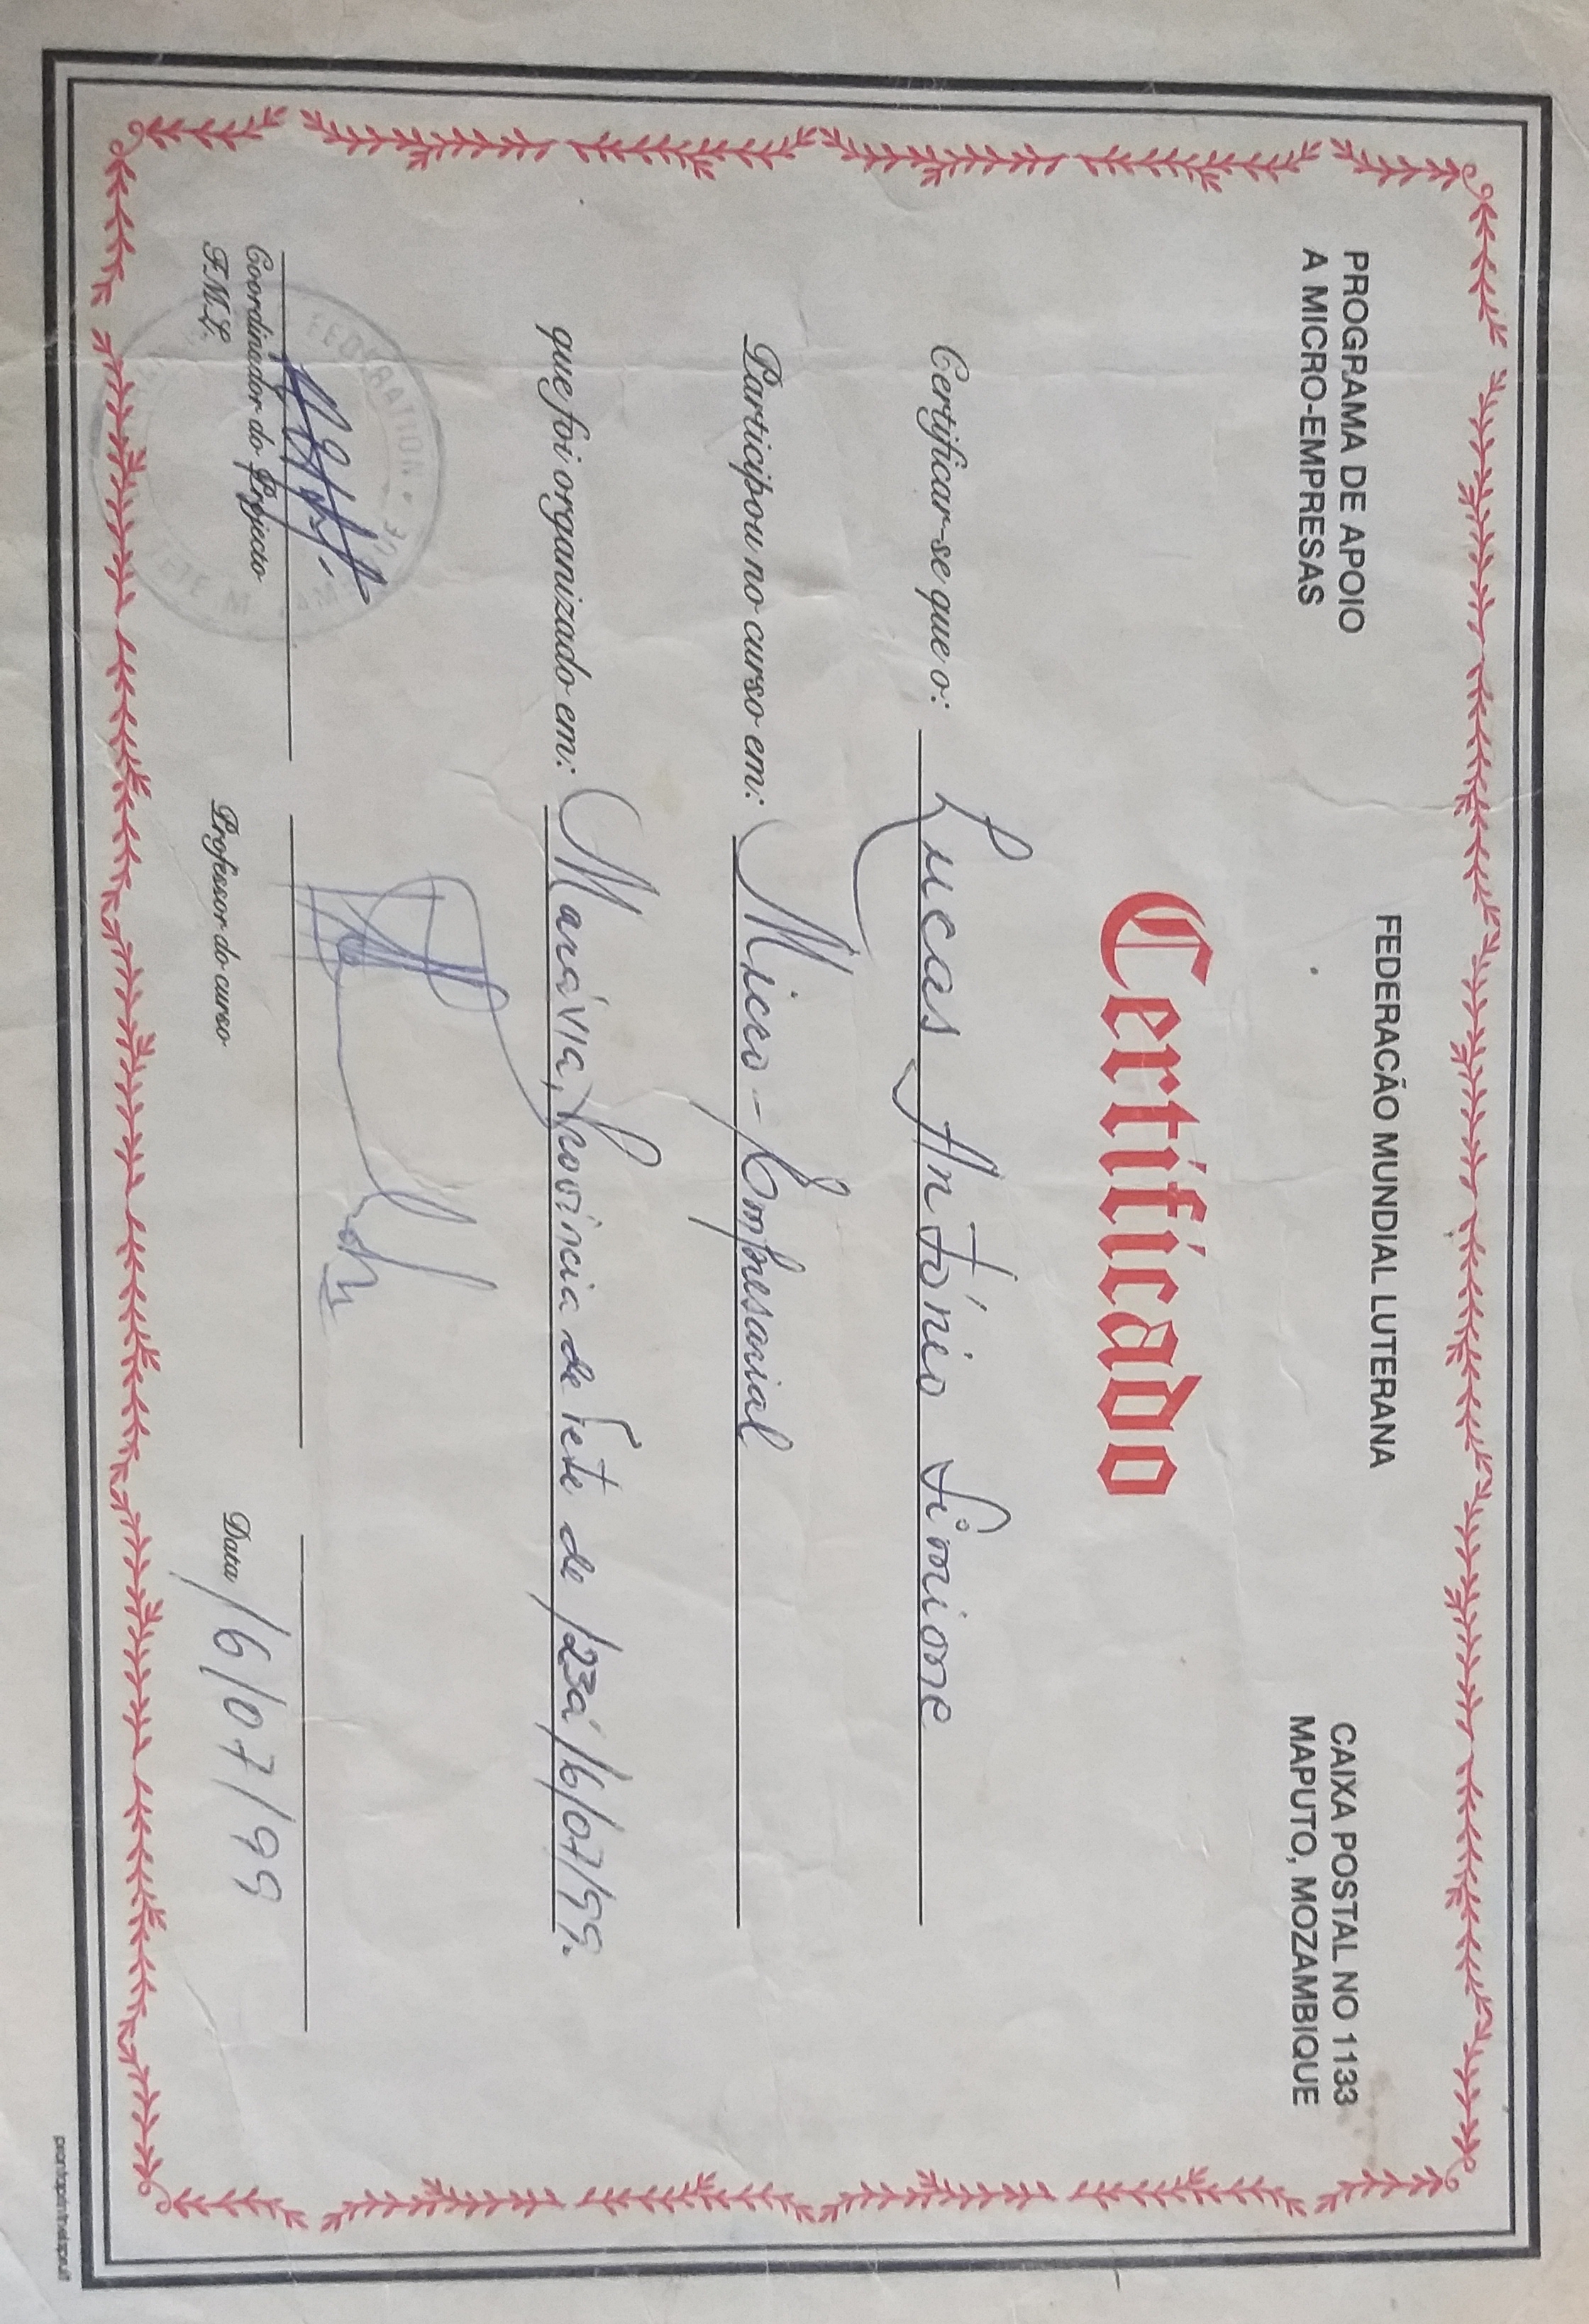 PROGRAMA DE APOIO
A MICRO-EMPRESAS
FEDERACÃO MUNDIAL LUTERANA
CAIXA POSTAL NO 1133
MAPUTO, MOZAMBIQUE
Certificado
Certificar-se que o: Lucas António Simione
Participou no curso em: Micro-Empresarial
que foi organizado em: Marávia, Província de Tete de 12 á 16/07/99.
Coordinador do Projecto
F.M.L.
Professor do curso
Data 16/07/99
FEDERATION